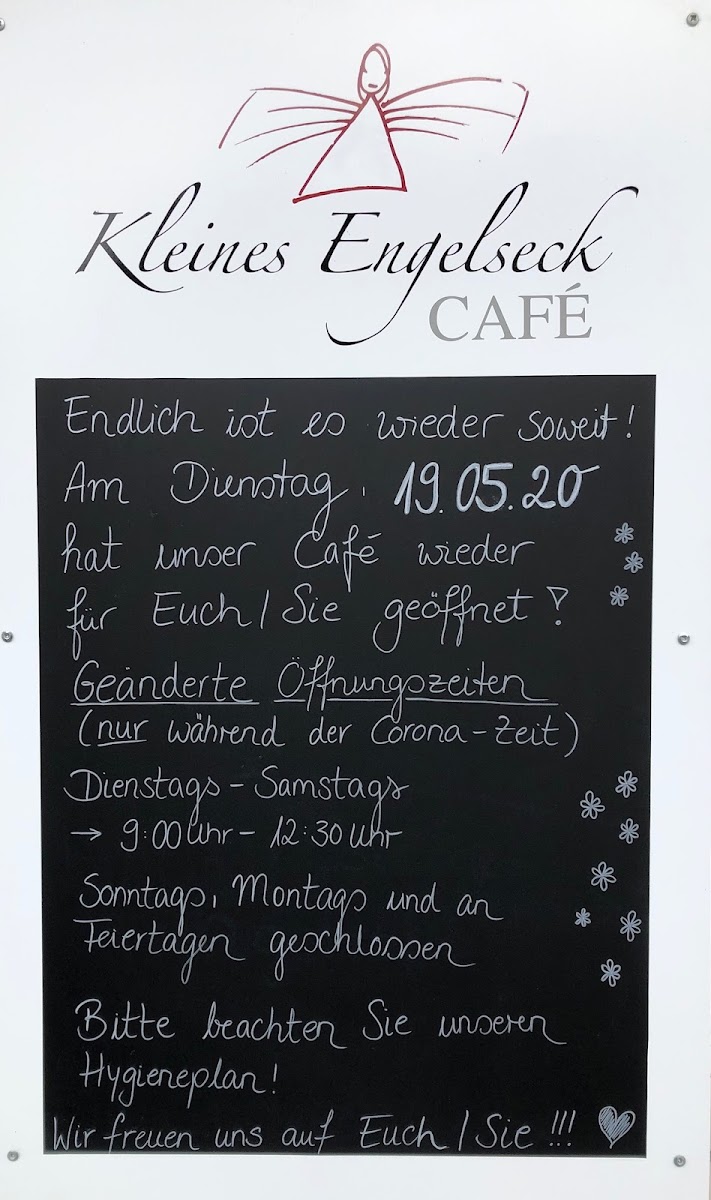 Kleines Engelseck
CAFÉ
Endlich ist es wieder soweit!
Am Dienstag, 19.05.20
hat unser Café wieder
für Euch / Sie geöffnet!
Geänderte Öffnungszeiten
(nur während der Corona-Zeit)
Dienstags - Samstags
→ 9:00 Uhr - 12:30 Uhr
Sonntags, Montags und an
Feiertagen geschlossen
Bitte beachten Sie unseren
Hygieneplan!
Wir freuen uns auf Euch / Sie !!!